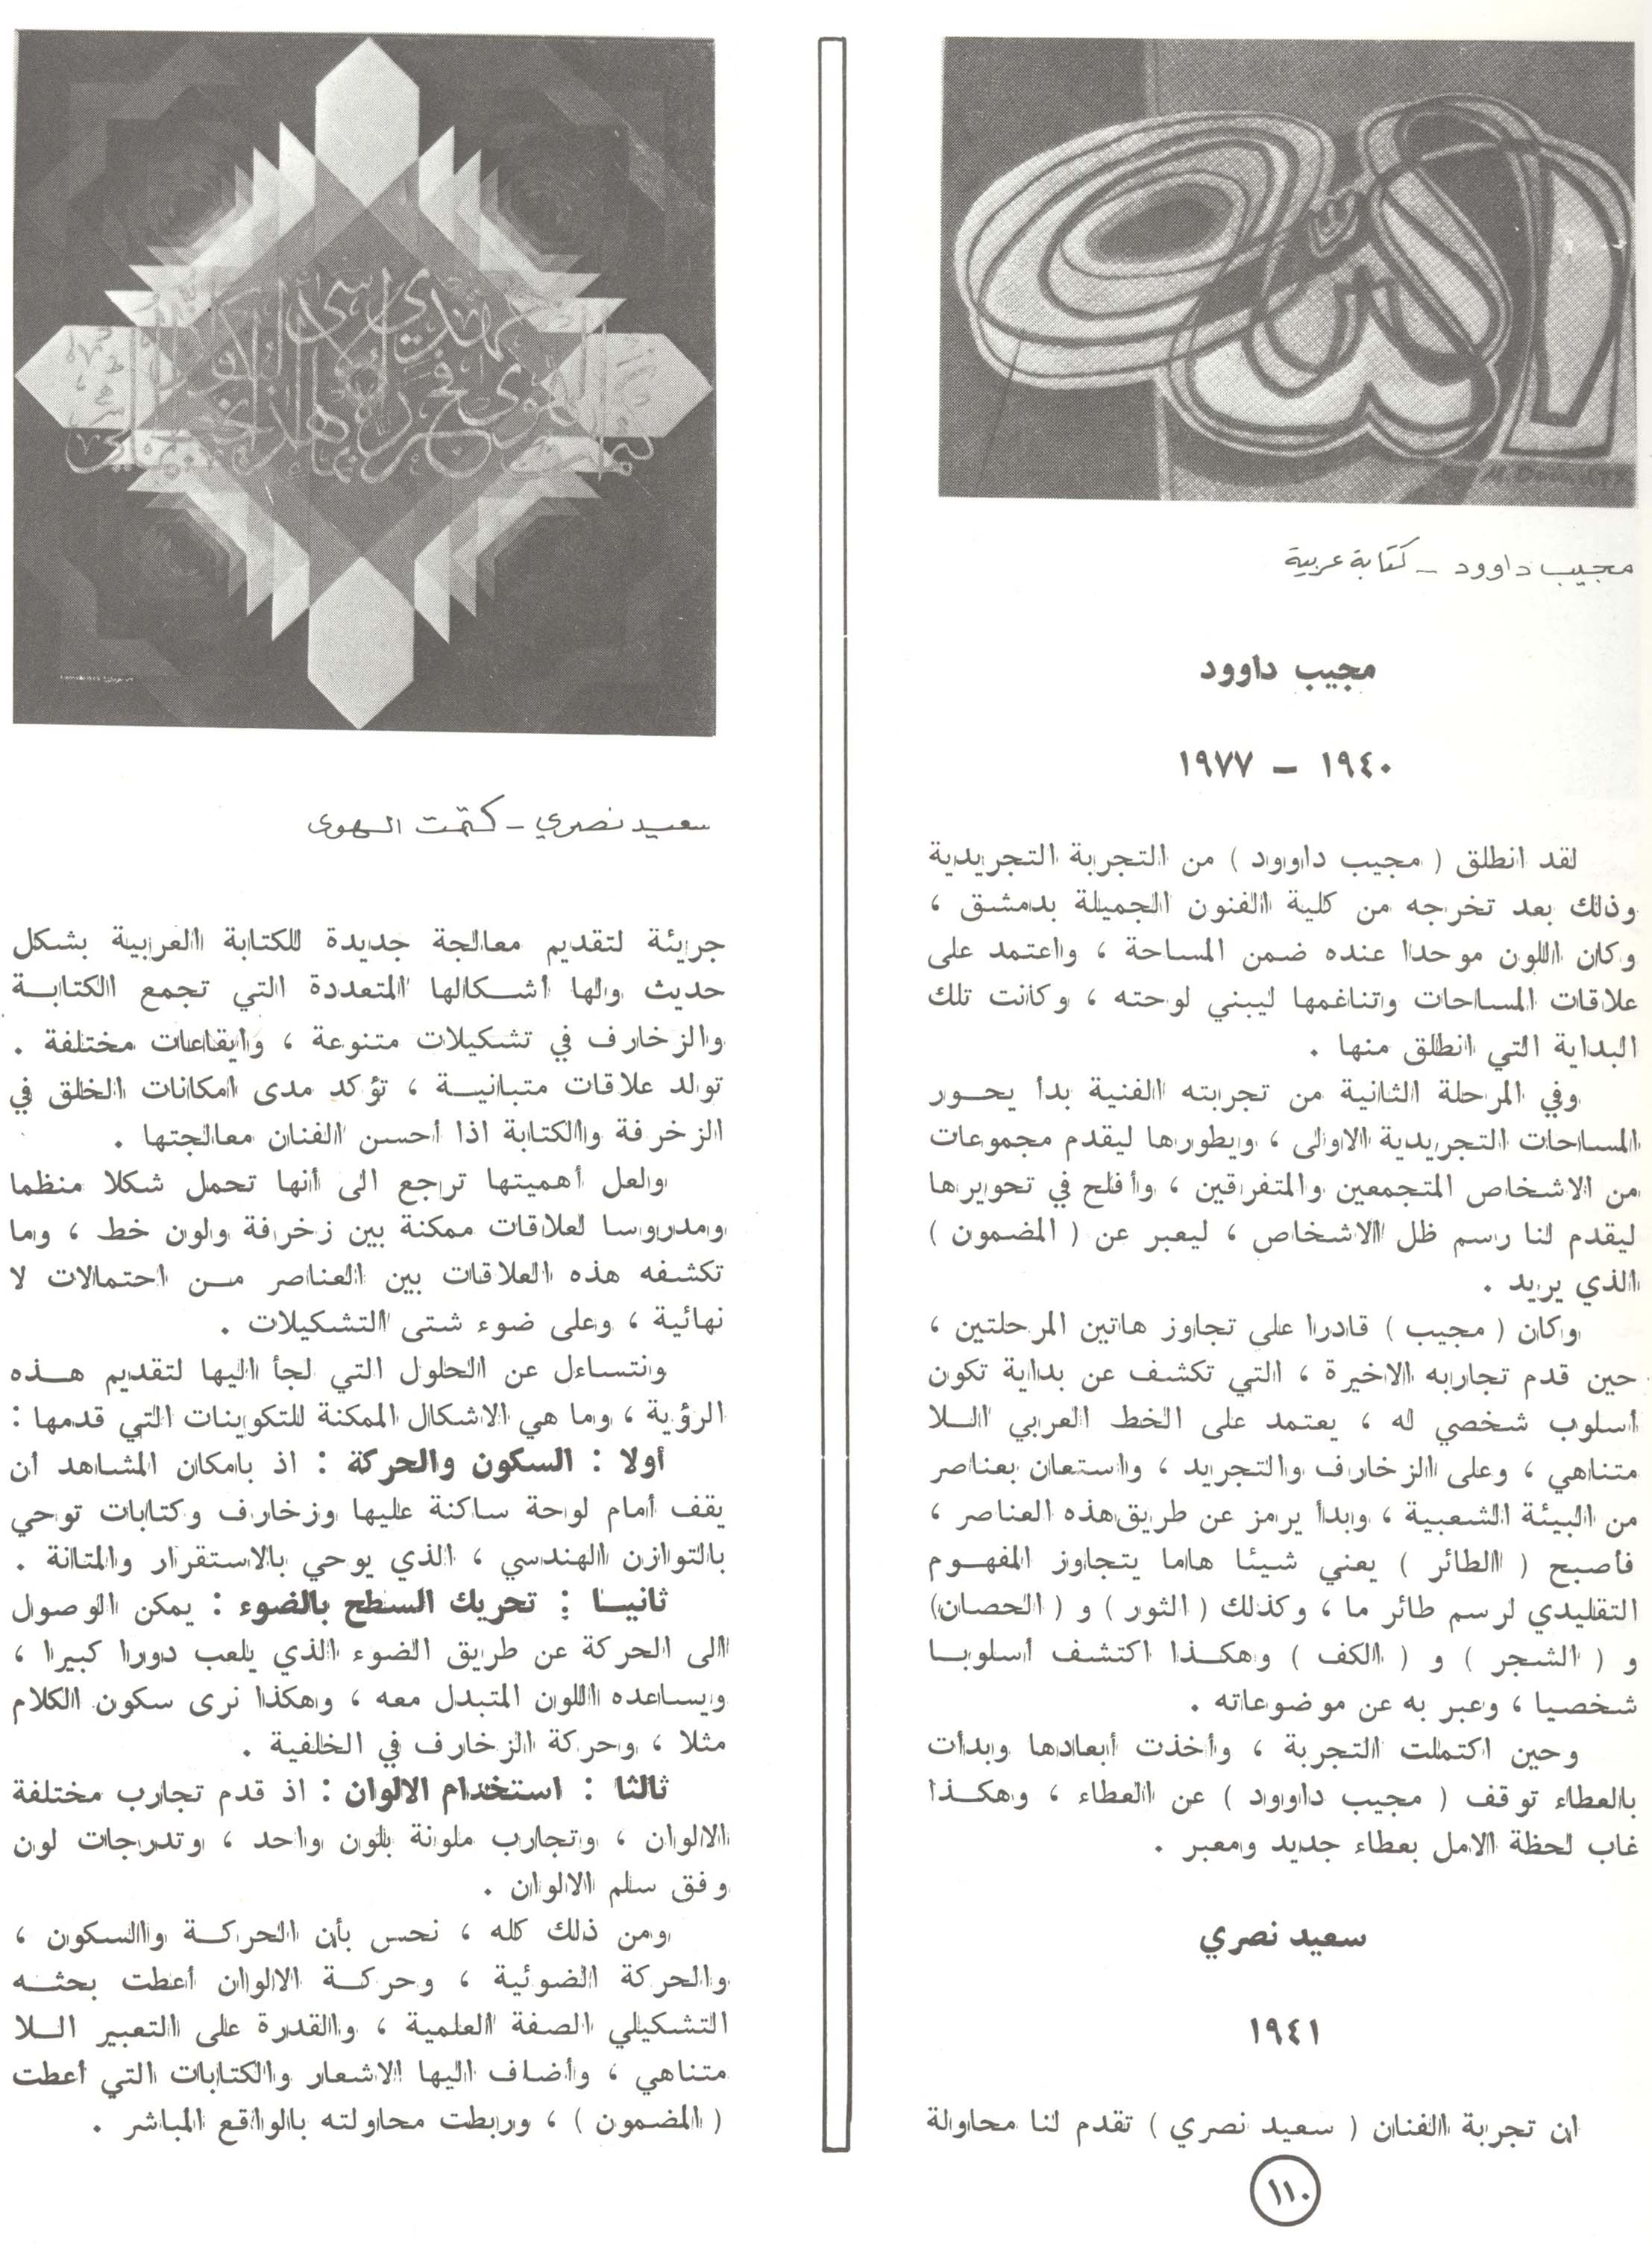 الله
مجيب داوود - كتابة عربية
مجيب داوود
١٩٤٠ - ١٩٧٧
لقد انطلق ( مجيب داوود ) من التجربة التجريدية
وذلك بعد تخرجه من كلية الفنون الجميلة بدمشق ،
وكان اللون موحدا عنده ضمن المساحة ، واعتمد على
علاقات المساحات وتناغمها ليبني لوحته ، وكانت تلك
البداية التي انطلق منها .
وفي المرحلة الثانية من تجربته الفنية بدأ يحـور
المساحات التجريدية الاولى ، ويطورها ليقدم مجموعات
من الاشخاص المتجمعين والمتفرقين ، وأفلح في تحويرها
ليقدم لنا رسم ظل الاشخاص ، ليعبر عن ( المضمون )
الذي يريد .
وكان ( مجيب ) قادرا على تجاوز هاتين المرحلتين ،
حين قدم تجاربه الاخيرة ، التي تكشف عن بداية تكون
أسلوب شخصي له ، يعتمد على الخط العربي الـلا
متناهي ، وعلى الزخارف والتجريد ، واستعان بعناصر
من البيئة الشعبية ، وبدأ يرمز عن طريق هذه العناصر ،
فأصبح ( الطائر ) يعني شيئا هاما يتجاوز المفهـوم
التقليدي لرسم طائر ما ، وكذلك ( الثور ) و ( الحصان)
و ( الشجر ) و ( الكف ) وهكـذا اكتشف أسلوبـا
شخصيا ، وعبر به عن موضوعاته .
وحين اكتملت التجربة ، وأخذت أبعادها وبدأت
بالعطاء توقف ( مجيب داوود ) عن العطاء ، وهكـذا
غاب لحظة الامل بعطاء جديد ومعبر .
سعيد نصري
١٩٤١
ان تجربة الفنان ( سعيد نصري ) تقدم لنا محاولة
١١٠
سعيد نصري - كتمت الهوى
جريئة لتقديم معالجة جديدة للكتابة العربية بشكل
حديث ولها أشكالها المتعددة التي تجمع الكتابـة
والزخارف في تشكيلات متنوعة ، وايقاعات مختلفة .
تولد علاقات متبانيـة ، تؤكد مدى امكانات الخلق في
الزخرفة والكتابة اذا أحسن الفنان معالجتها .
ولعل أهميتها تراجع الى أنها تحمل شكلا منظما
ومدروسا لعلاقات ممكنة بين زخرفة ولون خط ، وما
تكشفه هذه العلاقات بين العناصر مـن احتمالات لا
نهائية ، وعلى ضوء شتى التشكيلات .
ونتساءل عن الحلول التي لجأ اليها لتقديم هـذه
الرؤية ، وما هي الاشكال الممكنة للتكوينات التي قدمها :
أولا : السكون والحركة : اذ بامكان المشاهد أن
يقف أمام لوحة ساكنة عليها وزخارف وكتابات توحي
بالتوازن الهندسي ، الذي يوحي بالاستقرار والمتانة .
ثانيـا : تحريك السطح بالضوء : يمكن الوصول
الى الحركة عن طريق الضوء الذي يلعب دورا كبيرا ،
ويساعده اللون المتبدل معه ، وهكذا نرى سكون الكلام
مثلا ، وحركة الزخارف في الخلفية .
ثالثا : استخدام الالوان : اذ قدم تجارب مختلفة
الالوان ، وتجارب ملونة بلون واحد ، وتدرجات لون
وفق سلم الالوان .
ومن ذلك كله ، نحس بأن الحركـة والسكون ،
والحركة الضوئية ، وحركـة الالوان أعطت بحثـه
التشكيلي الصفة العلمية ، والقدرة على التعبير الـلا
متناهي ، وأضاف اليها الاشعار والكتابات التي أعطت
( المضمون ) ، وربطت محاولته بالواقع المباشر .